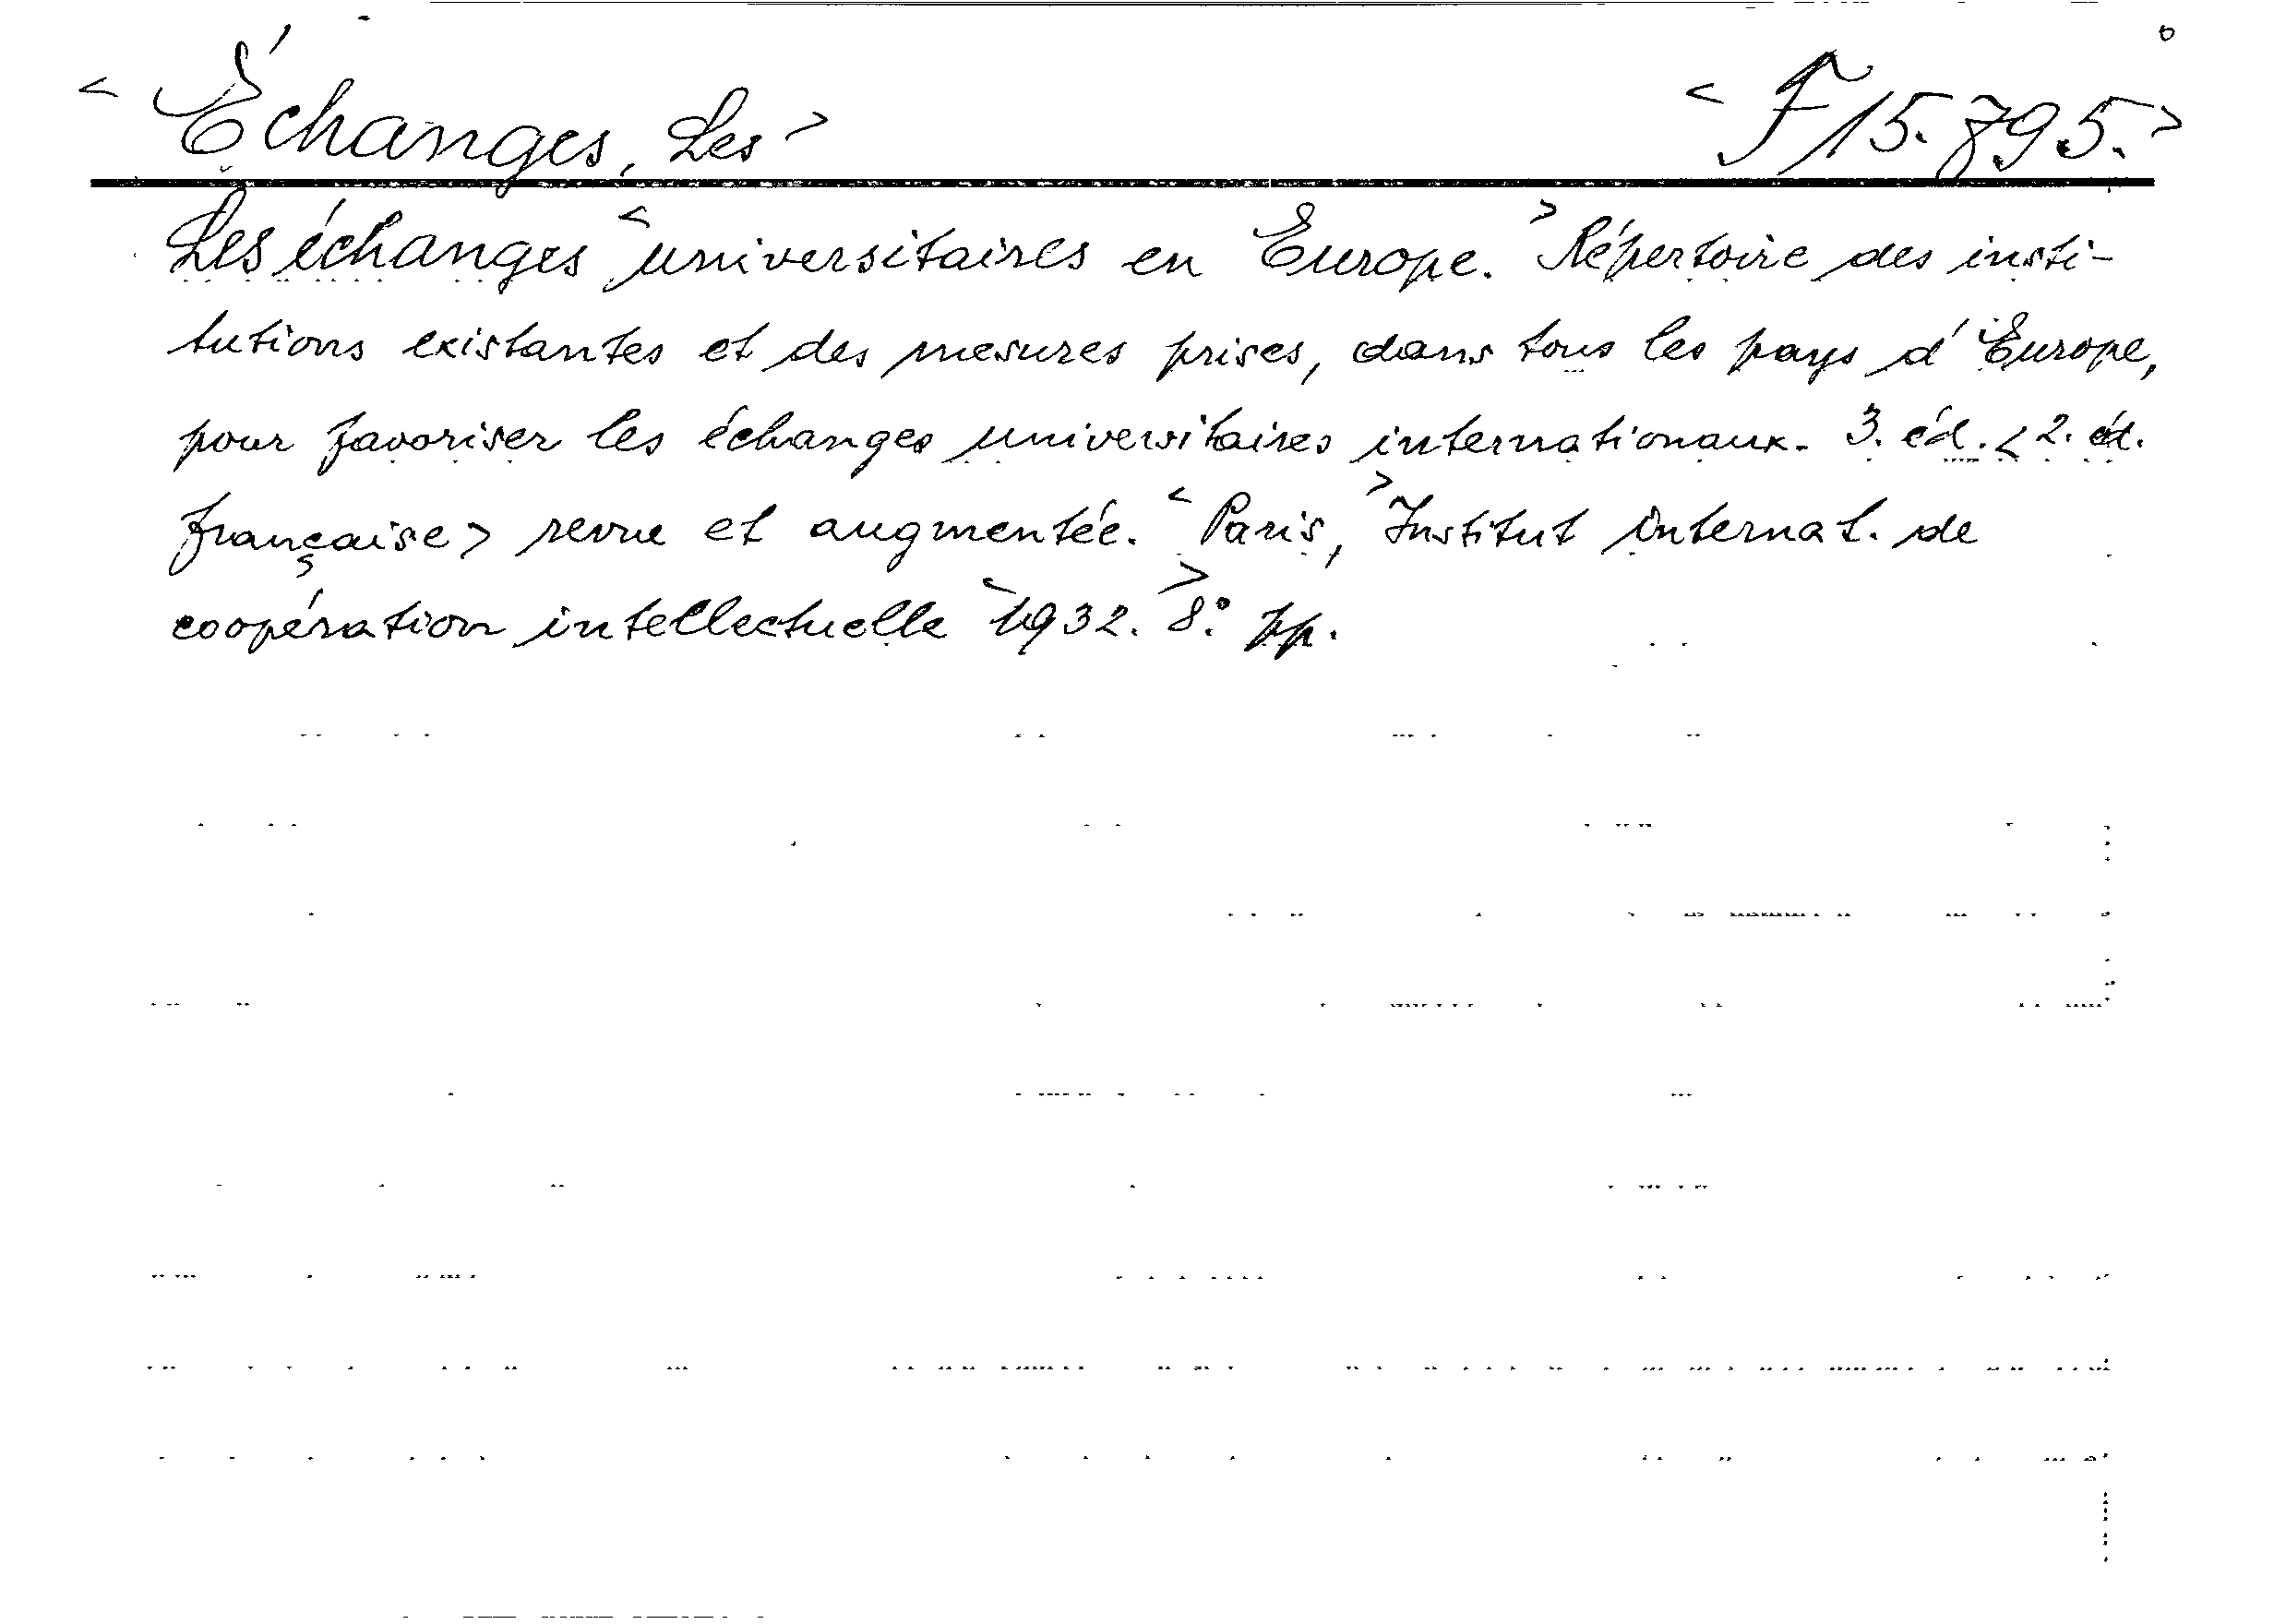 < Échanges, Les > < F 15.795. >
Les échanges < universitaires en Europe. > Répertoire des insti-
tutions existantes et des mesures prises, dans tous les pays d'Europe,
pour favoriser les échanges universitaires internationaux. 3. éd. < 2. éd.
française > revue et augmentée. < Paris, > Institut internat. de
coopération intellectuelle < 1932. > 8° pp.